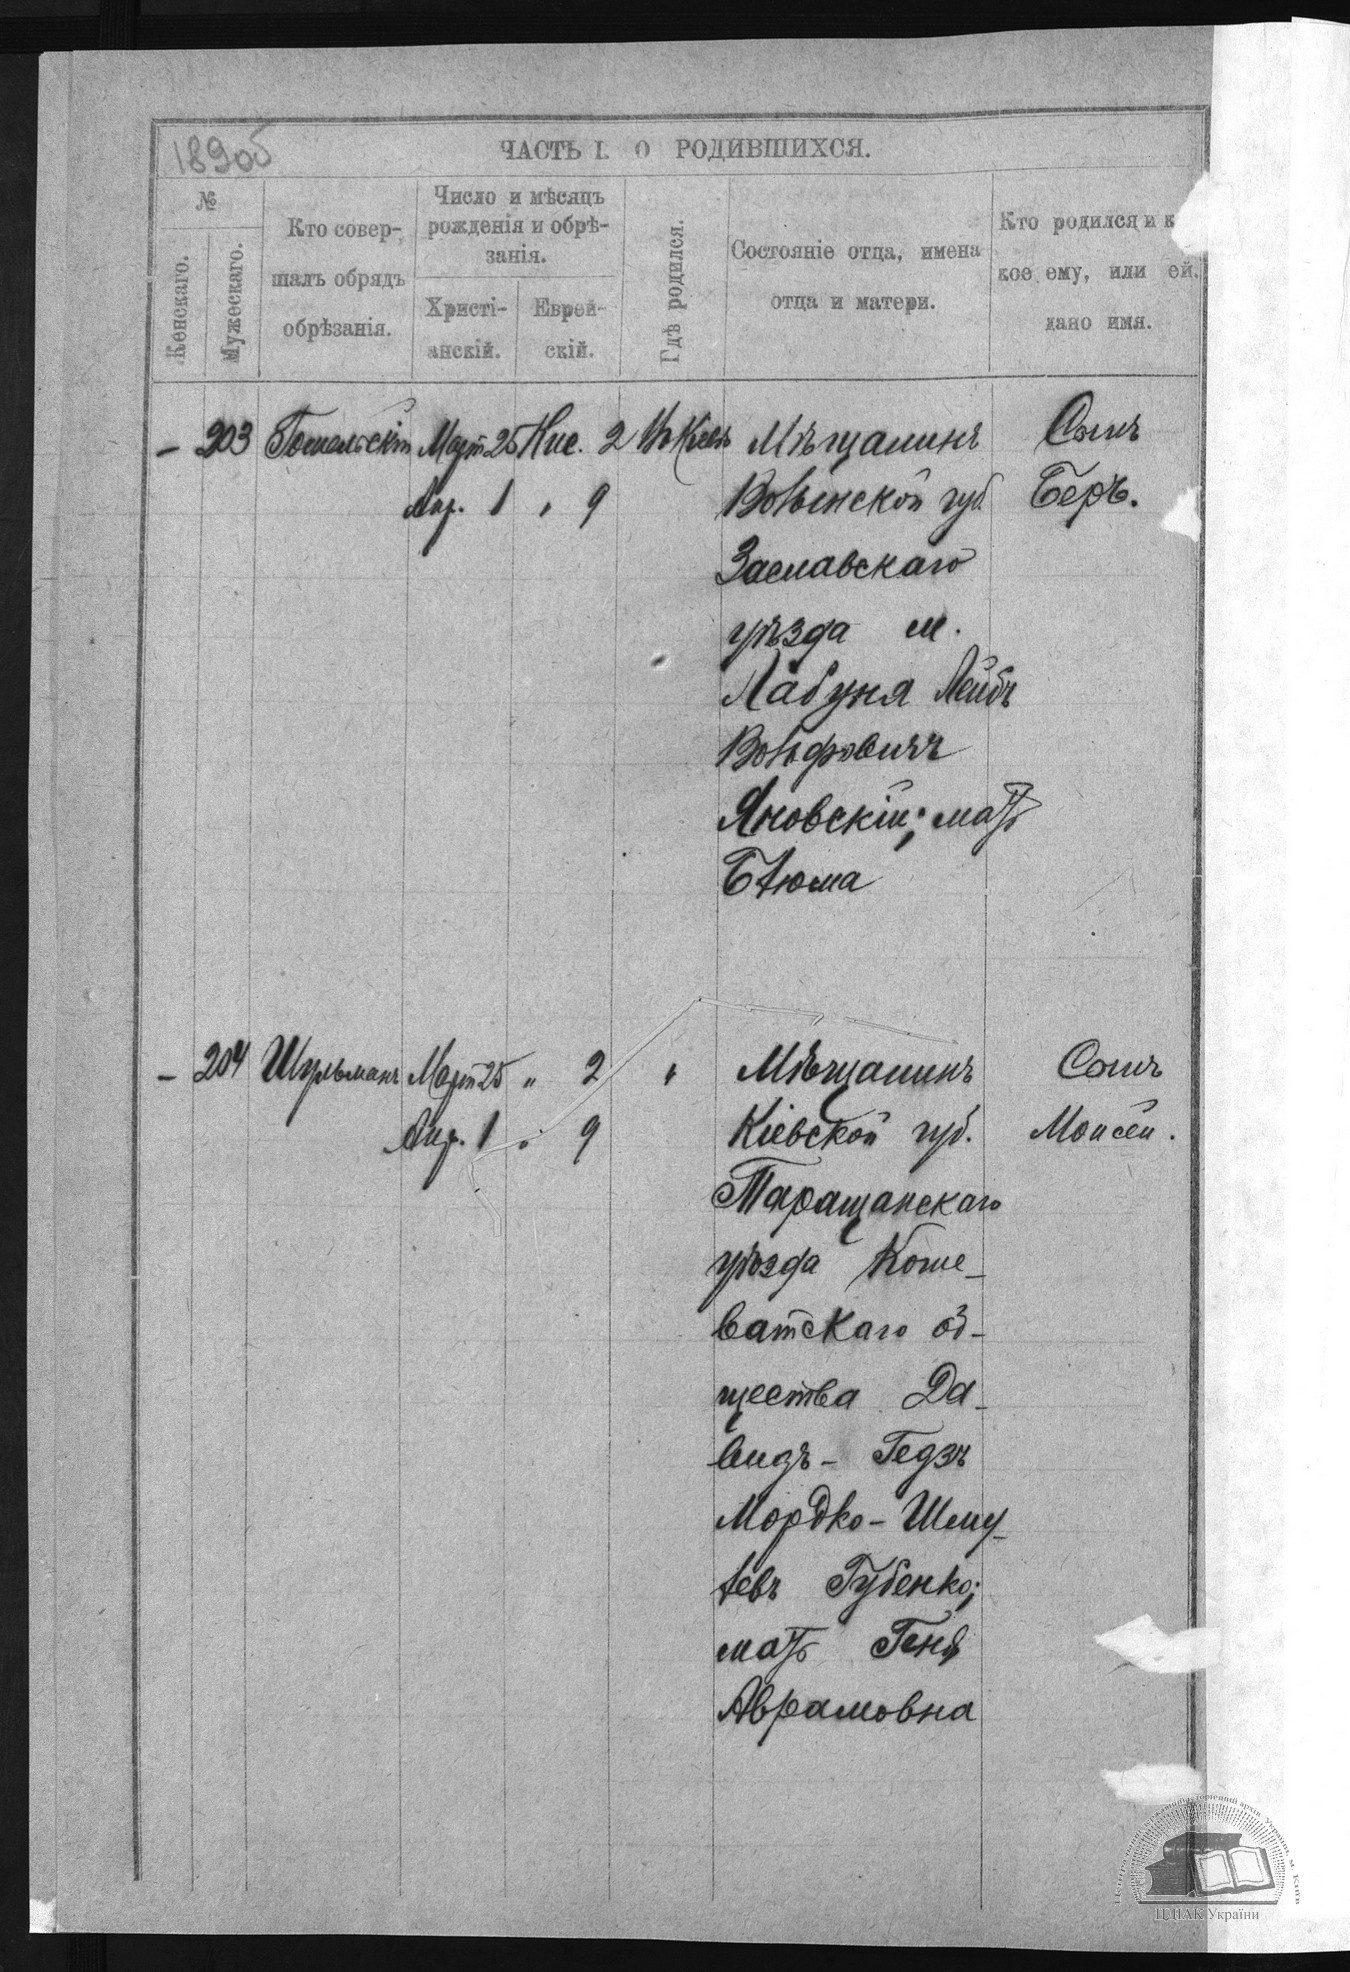 189об
ЧАСТЬ I. О РОДИВШИХСЯ.
№
Женскаго.
Мужескаго.
Кто совер-
шалъ обрядъ
обрѣзанія.
Число и мѣсяцъ
рожденія и обрѣ-
занія.
Христі-
анскій.
Еврей-
скій.
Гдѣ родился.
Состояніе отца, имена
отца и матери.
Кто родился и к
кое ему, или ей.
дано имя.
– 203 Гомельскій Март 25 Нис. 2 Въ Кіевѣ Мѣщанинъ Сынъ
Апр. 1 " 9 Волынской губ. Беръ.
Заславскаго
уѣзда м.
Лабуня Лейбъ
Вольфовичъ
Яновскій; мать
Блюма
– 204 Шульманъ Март 25 " 2 " Мѣщанинъ Сынъ
Апр. 1 " 9 Кіевской губ. Моисей.
Таращанскаго
уѣзда Коше-
ватскаго об-
щества Да-
видъ-Гедзъ
Мордко-Шму-
левъ Губенко;
мать Геня
Аврамовна
ЦДІАК України